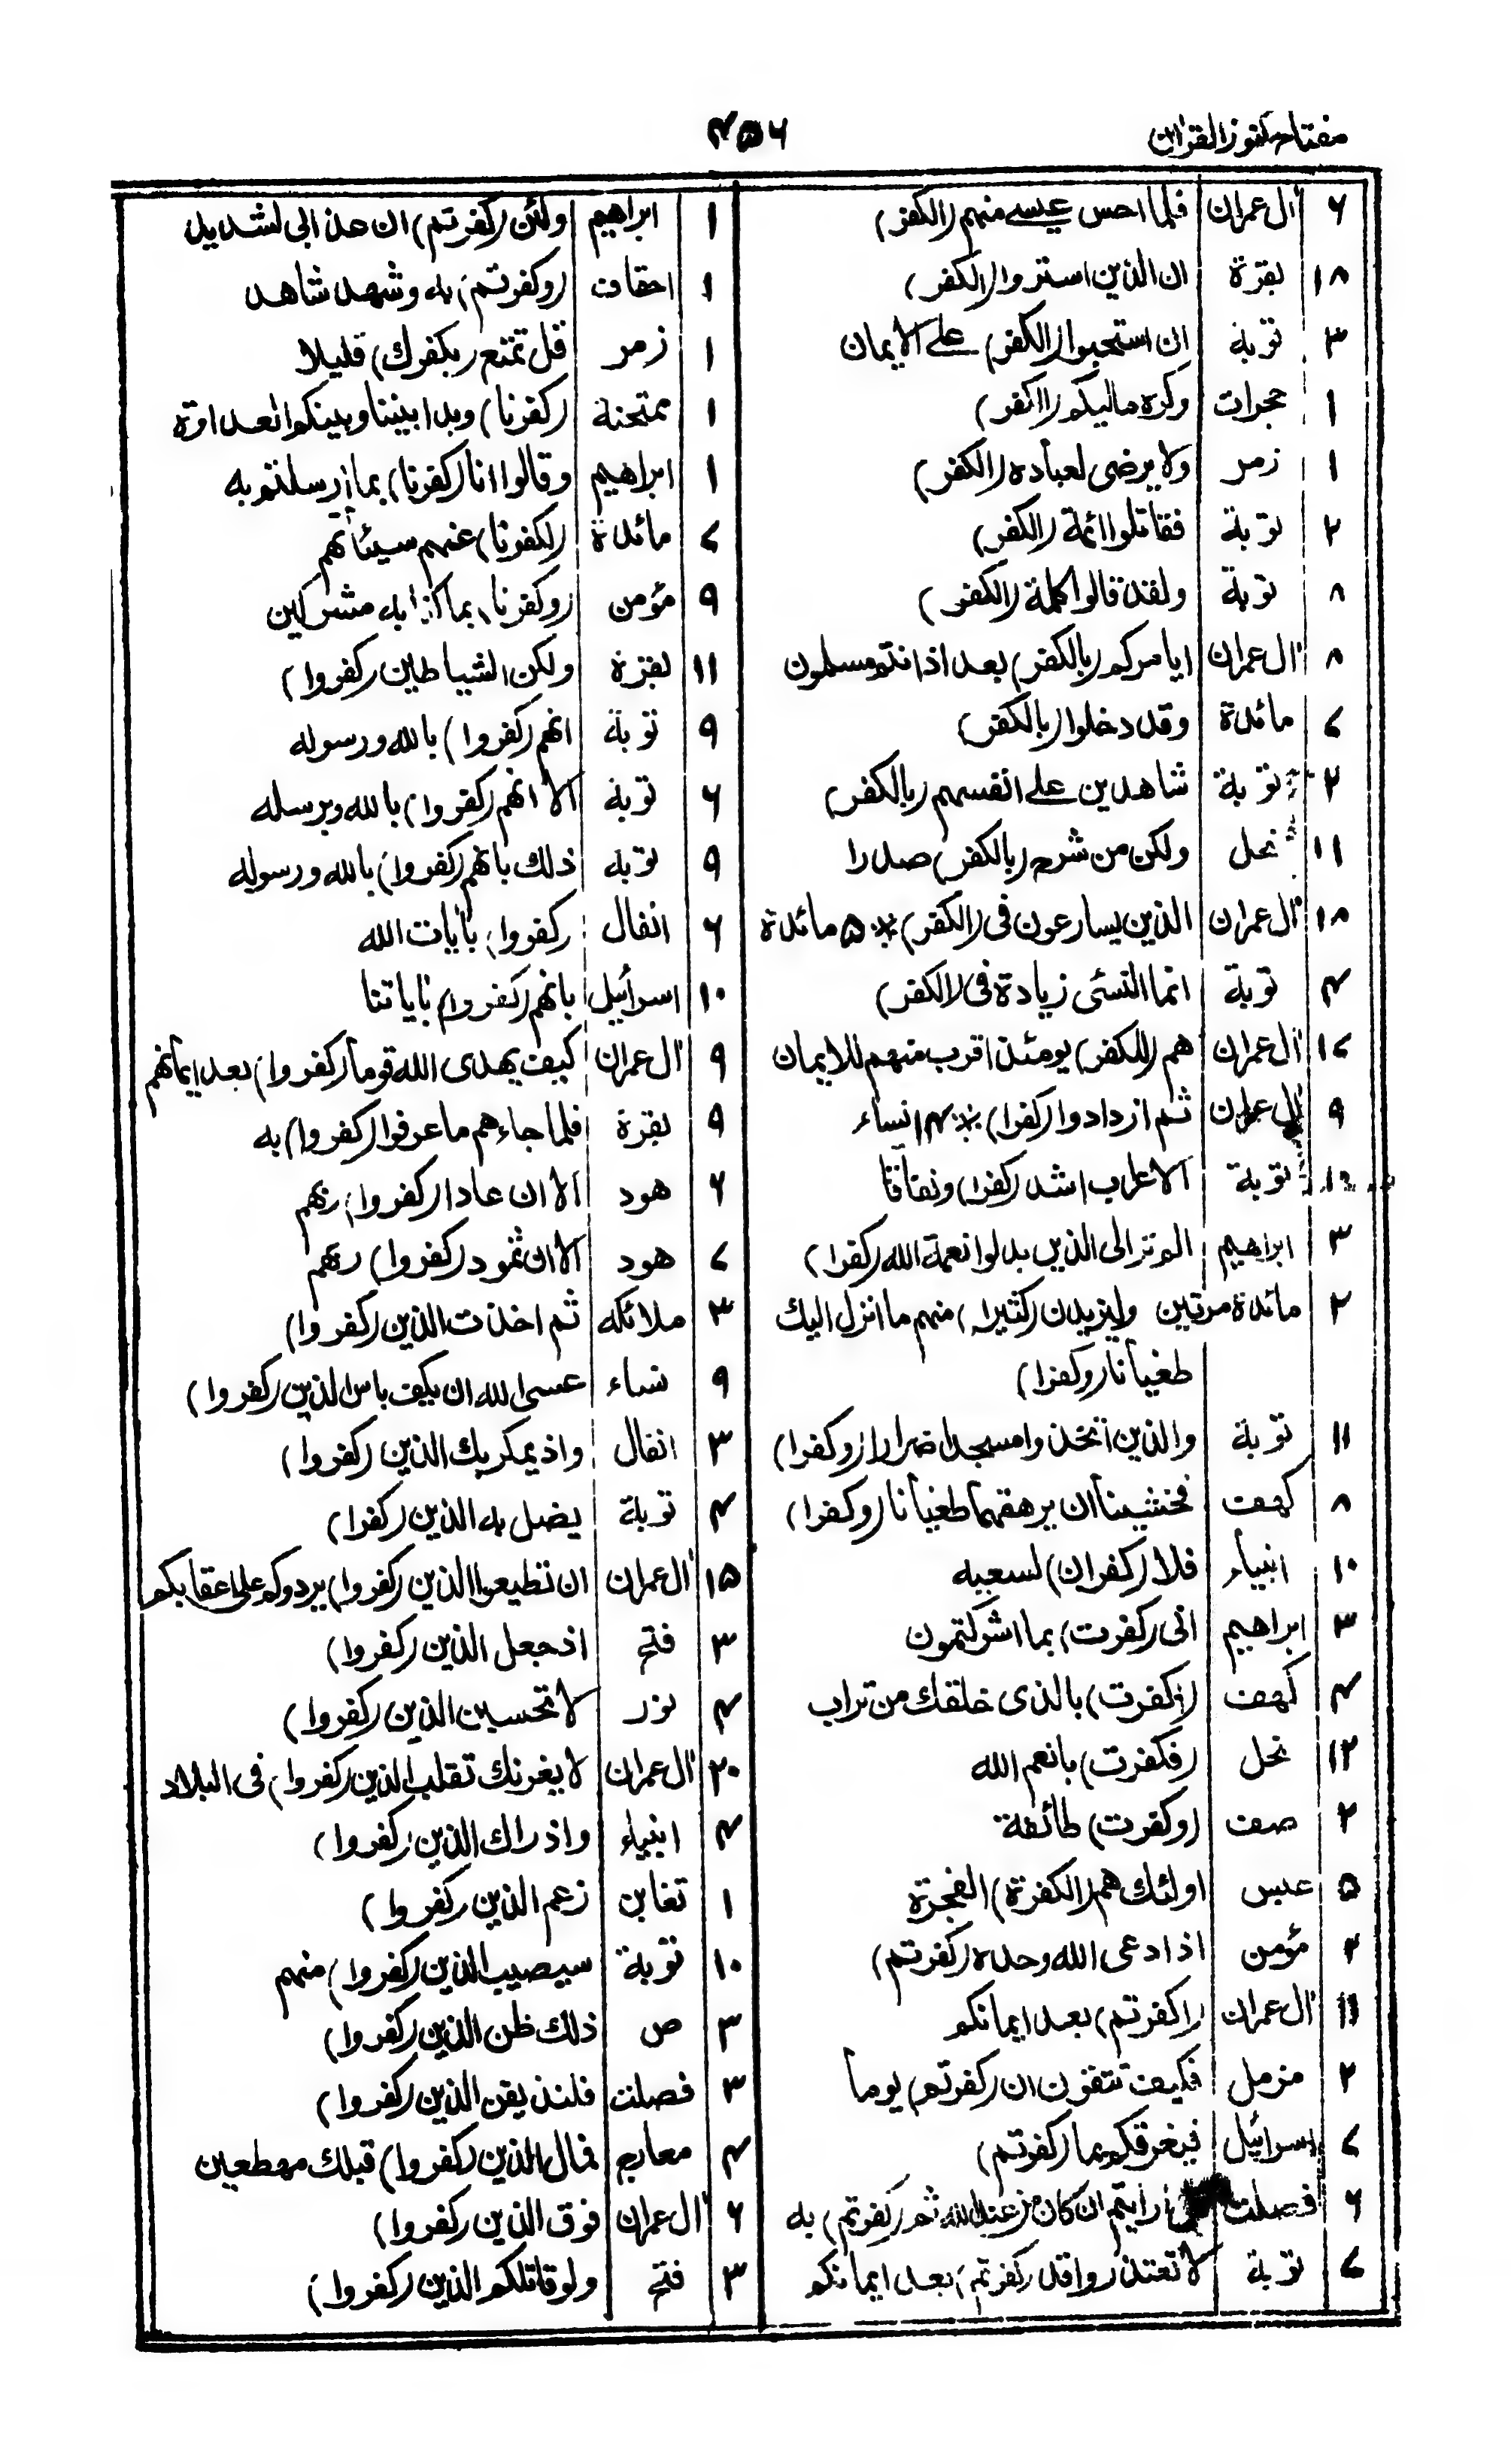 مفتاح کنوز القران
۴۵۶
۶ ال عمران فلما احس عیسے منهم (الکفر)
۱۸ بقرة ان الذین اشتروا (الکفر)
۳ توبة ان استحبوا (الکفر) علے الایمان
۱ حجرات وکره الیکم (الکفر)
۱ زمر ولا یرضی لعباده (الکفر)
۲ توبة فقاتلوا ائمة (الکفر)
۸ توبة ولقد قالوا کلمة (الکفر)
۸ ال عمران ایامرکم (بالکفر) بعد اذ انتم مسلمون
۷ مائدة وقد دخلوا (بالکفر)
۲ توبة شاهدین علے انفسهم (بالکفر)
۱۱ نحل ولکن من شرح (بالکفر) صدرا
۱۸ ال عمران الذین یسارعون فی (الکفر) ** ۵ مائدة
۴ توبة انما النسئی زیادة فی (الکفر)
۱۷ ال عمران هم (للکفر) یومئذ اقرب منهم للایمان
۹ ال عمران ثم ازدادوا (کفرا) ** نساء
توبة الاعراب اشد (کفرا) ونفاقا
۳ ابراهیم الم تر الی الذین بدلوا نعمة الله (کفرا)
۲ مائدة مرتین ولیزیدن (کثیرا) منهم ما انزل الیك
طغیانا (وکفرا)
۱۱ توبة والذین اتخذوا مسجدا ضرارا (وکفرا)
۸ کهف فخشینا ان یرهقهما طغیانا (وکفرا)
۱۰ انبیاء فلا (کفران) لسعیه
۳ ابراهیم انی (کفرت) بما اشرکتمون
۴ کهف (اکفرت) بالذی خلقك من تراب
۱۲ نحل (فکفرت) بانعم الله
۲ صف (وکفرت) طائفة
۵ عبس اولئك هم (الکفرة) الفجرة
۲ مؤمن اذا دعی الله وحده (کفرتم)
۱۱ ال عمران (اکفرتم) بعد ایمانکم
۲ مزمل فکیف تتقون ان (کفرتم) یوما
۷ اسرائیل فیغرقکم بما (کفرتم)
۶ فصلت ارایتم ان کان من عند الله ثم (کفرتم) به
۷ توبة لا تعتذروا قد (کفرتم) بعد ایمانکم
۱ ابراهیم ولئن (کفرتم) ان عذابی لشدید
۱ احقاف (وکفرتم) به وشهد شاهد
۱ زمر قل تمتع (بکفرك) قلیلا
۱ ممتحنة (کفرنا) وبدا بیننا وبینکم العداوة
۱ ابراهیم وقالوا انا (کفرنا) بما ارسلتم به
۷ مائدة (لکفرنا) عنهم سیئاتهم
۹ مؤمن (وکفرنا) بما کنا به مشرکین
۱۱ بقرة ولکن الشیاطین (کفروا)
۹ توبة انهم (کفروا) بالله ورسوله
۶ توبة الا انهم (کفروا) بالله وبرسله
۹ توبه ذلك بانهم (کفروا) بالله ورسوله
۶ انفال (کفروا) بایات الله
۱۰ اسرائیل بانهم (کفروا) بایاتنا
۹ ال عمران کیف یهدی الله قوما (کفروا) بعد ایمانهم
۹ بقرة فلما جاءهم ما عرفوا (کفروا) به
۶ هود الا ان عادا (کفروا) ربهم
۷ هود الا ان ثمود (کفروا) ربهم
۳ ملائکه ثم اخذت الذین (کفروا)
۹ نساء عسی الله ان یکف باس الذین (کفروا)
۳ انفال واذ یمکر بك الذین (کفروا)
۴ توبة یضل به الذین (کفرا)
۱۵ ال عمران ان تطیعوا الذین (کفروا) یردوکم علی اعقابکم
۳ فتح اذ جعل الذین (کفروا)
۴ نور لا تحسبن الذین (کفروا)
۲۰ ال عمران لا یغرنك تقلب الذین (کفروا) فی البلاد
۴ انبیاء واذ راك الذین (کفروا)
۱ تغابن زعم الذین (کفروا)
۱۰ توبة سیصیب الذین (کفروا) منهم
۳ ص ذلك ظن الذین (کفروا)
۳ فصلت فلنذیقن الذین (کفروا)
۴ معارج فمال الذین (کفروا) قبلك مهطعین
۶ ال عمران فوق الذین (کفروا)
۳ فتح ولو قاتلکم الذین (کفروا)